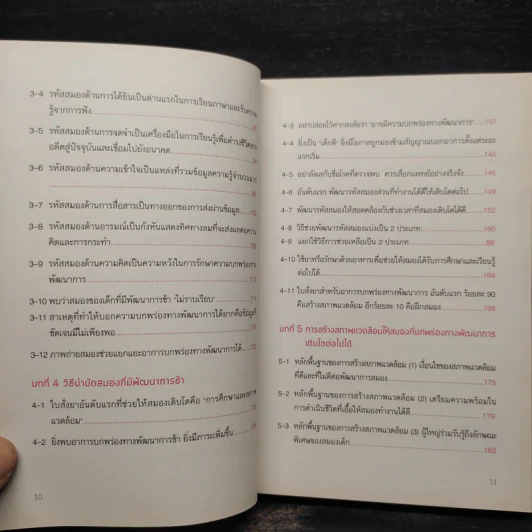 3-4 รหัสสมองด้านการได้ยินเป็นด่านแรกในการเรียนภาษาและรับความ
รู้จากการฟัง
3-5 รหัสสมองด้านการจดจำเป็นเครื่องมือในการเรียนรู้เพื่อดำรงชีวิตจาก
อดีตสู่ปัจจุบันและเชื่อมไปยังอนาคต
3-6 รหัสสมองด้านความเข้าใจเป็นแหล่งที่รวมข้อมูลความรู้จำนวนมาก
3-7 รหัสสมองด้านการสื่อสารเป็นทางออกของการส่งผ่านข้อมูล
3-8 รหัสสมองด้านอารมณ์เป็นกังหันแสดงทิศทางลมที่จะส่งผลต่อความ
คิดและการกระทำ
3-9 รหัสสมองด้านความคิดเป็นความหวังในการรักษาความบกพร่องทาง
พัฒนาการ
3-10 พบว่าสมองของเด็กที่มีพัฒนาการช้า 'ไม่ราบเรียบ'
3-11 สาเหตุที่ทำให้บอกความบกพร่องทางพัฒนาการได้ยากคือข้อมูลที่
ชัดเจนมีไม่เพียงพอ
3-12 ภาพถ่ายสมองช่วยแยกแยะอาการบกพร่องทางพัฒนาการได้
บทที่ 4 วิธีบำบัดสมองที่มีพัฒนาการช้า
4-1 ใบสั่งยาอันดับแรกที่ช่วยให้สมองเติบโตคือ 'การศึกษาและสภาพ
แวดล้อม'
4-2 ยิ่งพบอาการบกพร่องทางพัฒนาการช้า ยิ่งมีภาระเพิ่มขึ้น
10
4-3 อย่าปล่อยไว้หากสงสัยว่า 'อาจมีความบกพร่องทางพัฒนาการ' 137
4-4 ยิ่งเป็น 'เด็กดี' ยิ่งมีโอกาสถูกมองข้ามสัญญาณบอกอาการตั้งแต่ระยะ
แรกเริ่ม 140
4-5 อย่าลังเลกับชื่อโรคที่ตรวจพบ ควรเลือกแพทย์อย่างจริงจัง 145
4-6 อันดับแรก พัฒนารหัสสมองส่วนที่ทำงานได้ดีให้เติบโตต่อไป 149
4-7 พัฒนารหัสสมองให้สอดคล้องกับช่วงเวลาที่สมองเติบโตได้ดี 152
4-8 วิธีช่วยพัฒนารหัสสมองแบ่งเป็น 2 ประเภท 160
4-9 แยกใช้วิธีการช่วยเหลือเป็น 2 ประเภท
4-10 ใช้ยาหรือรักษาด้วยอาหารเพื่อช่วยให้สมองได้รับการศึกษาและเรียนรู้
ต่อไปได้ 164
4-11 ใบสั่งยาสำหรับอาการบกพร่องทางพัฒนาการ อันดับแรก ร้อยละ 90
คือสร้างสภาพแวดล้อม อีกร้อยละ 10 คือฝึกสมอง 168
บทที่ 5 การสร้างสภาพแวดล้อมให้สมองที่บกพร่องทางพัฒนาการ
เติบโตต่อไปได้
5-1 หลักพื้นฐานของการสร้างสภาพแวดล้อม (1) เงื่อนไขของสภาพแวดล้อม
ที่ดีและที่ไม่ดีต่อพัฒนาการสมอง 175
5-2 หลักพื้นฐานของการสร้างสภาพแวดล้อม (2) เตรียมความพร้อมใน
การดำเนินชีวิตที่เอื้อให้สมองทำงานได้ดี 179
5-3 หลักพื้นฐานของการสร้างสภาพแวดล้อม (3) ผู้ใหญ่ร่วมรับรู้ถึงลักษณะ
พิเศษของสมองเด็ก 183
11